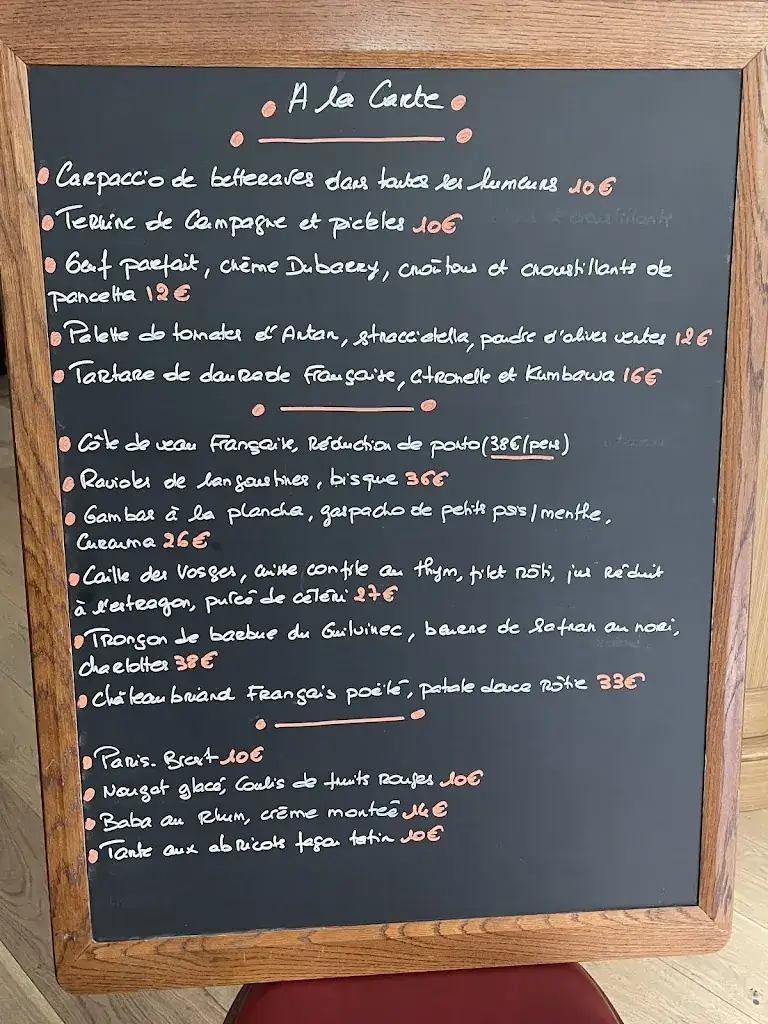 A la Carte
Carpaccio de betteraves dans toutes ses humeurs 10€
Terrine de Campagne et pickles 10€
Oeuf parfait, crème Dubarry, croûtons et croustillants de
pancetta 12€
Palette de tomates d'Antan, stracciatella, poudre d'olives vertes 12€
Tartare de daurade Française, citronelle et Kumbawa 16€
Côte de veau Française, Réduction de porto (38€/pers)
Ravioles de langoustines, bisque 36€
Gambas à la plancha, gaspacho de petits pois/menthe,
Curcuma 26€
Caille des Vosges, cuisse confite au thym, filet rôti, jus réduit
à l'estragon, purée de céleri 27€
Tronçon de barbue du Guilvinec, beurre de safran au nori,
échalottes 38€
Châteaubriand Français poêlé, patate douce rôtie 33€
Paris-Brest 10€
Nougat glacé, Coulis de fruits rouges 10€
Baba au Rhum, crème montée 14€
Tarte aux abricots façon tatin 10€